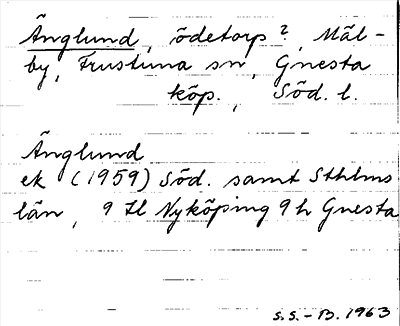 Änglund, ödetorp?, Mäl-
by, Frustuna sn, Gnesta
köp., Söd. l.
Änglund
ek (1959) Söd. samt Sthlms
län, 9 Il Nyköping 9 h Gnesta
S.S. - B. 1963